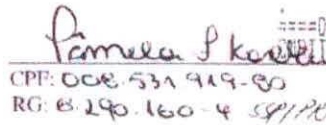 Pamela S
CPF: 008.531.919-90
RG: 8.290.160-4 SSP/PR